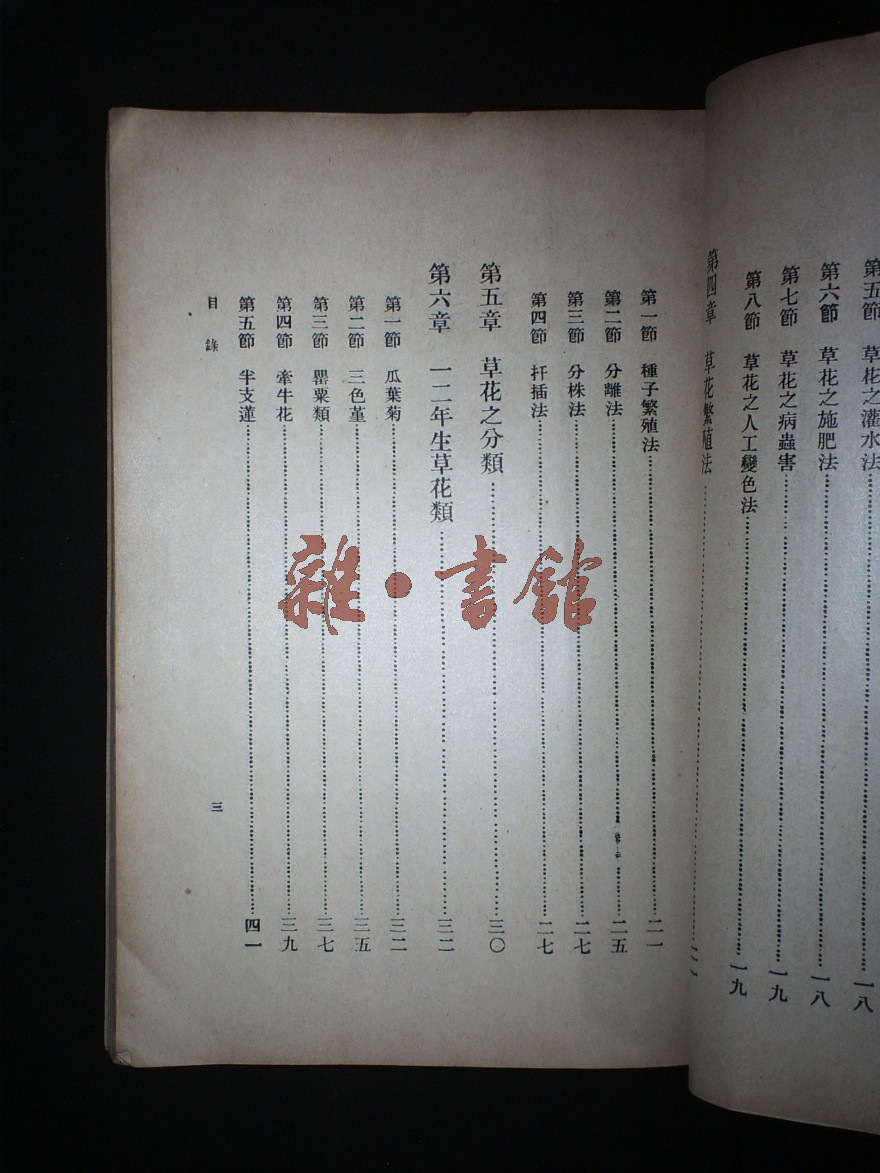 第五節 草花之灌水法 一八
第六節 草花之施肥法 一八
第七節 草花之病蟲害 一九
第八節 草花之人工變色法 一九
第四章 草花繁殖法
第一節 種子繁殖法 二一
第二節 分離法 二五
第三節 分株法 二七
第四節 扦插法 二七
第五章 草花之分類 三〇
第六章 一二年生草花類 三二
第一節 瓜葉菊 三二
第二節 三色堇 三五
第三節 罌粟類 三七
第四節 牽牛花 三九
第五節 半支蓮 四一
目錄
三
雜·書館